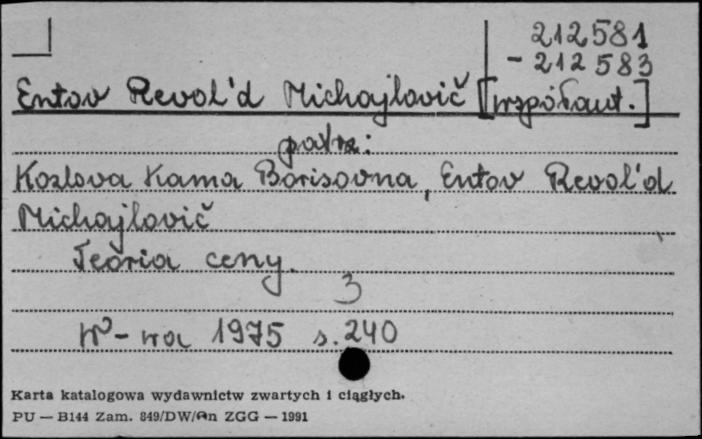 212581
- 212583
Entov Revol'd Michajlovič [współaut.]
patrz:
Kozlova Kama Borisovna, Entov Revol'd
Michajlovič
Teoria ceny.
3
W-wa 1975 s. 240
Karta katalogowa wydawnictw zwartych i ciągłych.
PU — B144 Zam. 849/DW/An ZGG — 1991